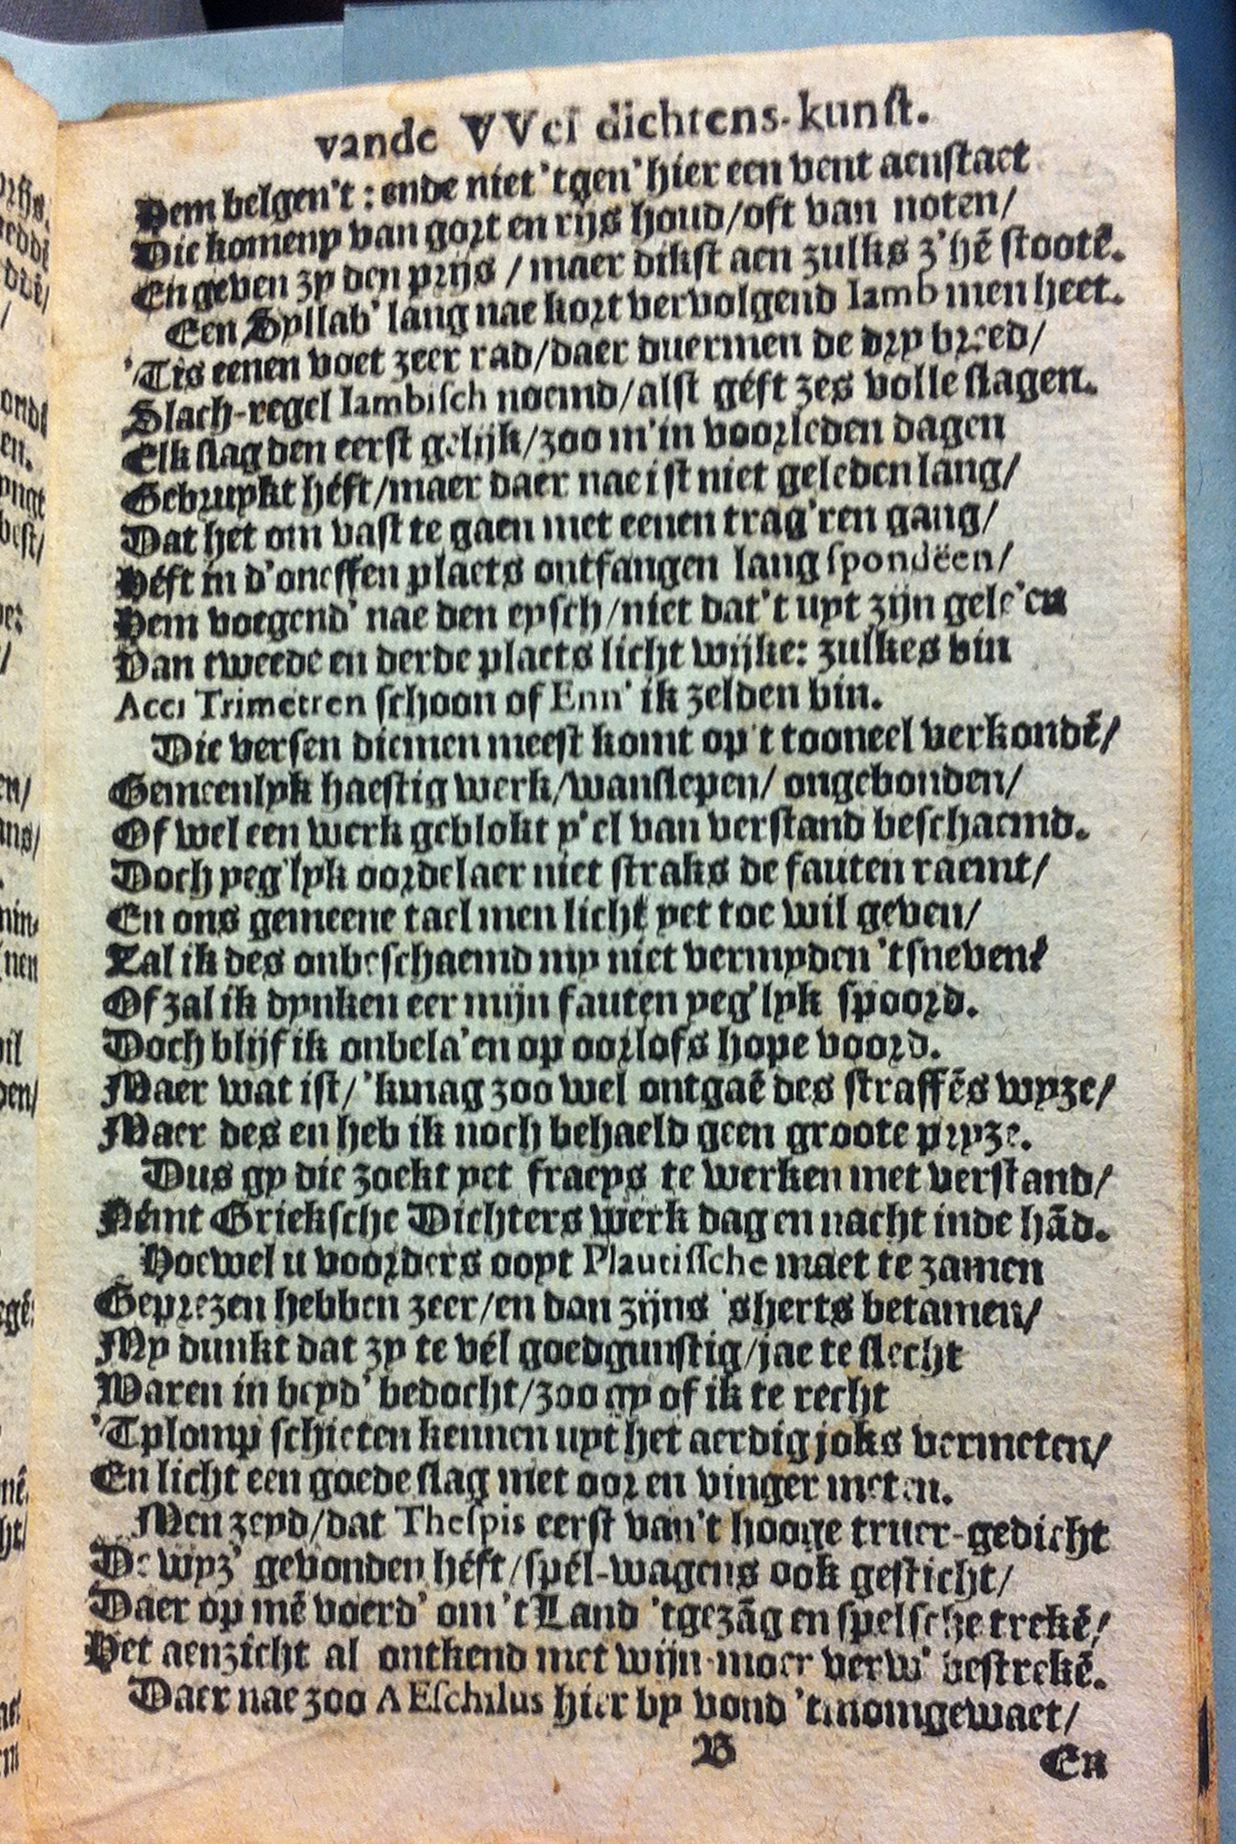 vande VVel dichtens-kunst.
Hem belgen't : ende niet 'tgen' hier een vent aenstaet
Die komeny van gort en rijs houd/oft van noten/
En geven zy den prijs / maer dikst aen zulks z'hē stootē.
Een Syllab' lang nae kort vervolgend Iamb men heet.
'Tis eenen voet zeer rad/daer duermen de dry breed/
Slach-regel Iambisch noemd/alst géft zes volle slagen.
Elk slag den eerst gelijk/zoo m'in voorleden dagen
Gebruykt héft/maer daer nae ist niet geleden lang/
Dat het om vast te gaen met eenen trag'ren gang/
Héft in d'oneffen plaets ontfangen lang spondëen/
Hem voegend' nae den eysch/niet dat't uyt zijn gele'en
Van tweede en derde plaets licht wijke: zulkes vin
Acci Trimetren schoon of Enn' ik zelden bin.
Die versen diemen meest komt op't tooneel verkondē/
Gemeenlyk haestig werk/wanslepen/ ongebonden/
Of wel een werk geblokt y'el van verstand beschaemd.
Doch yeg'lyk oordelaer niet straks de fauten raemt/
En ons gemeene tael men licht yet toe wil geven/
Zal ik des onbeschaemd my niet vermyden 'tsneven?
Of zal ik dynken eer mijn fauten yeg'lyk spoord.
Doch blijf ik onbela'en op oorlofs hope voord.
Maer wat ist/'kmag zoo wel ontgaē des straffēs wyze/
Maer des en heb ik noch behaeld geen groote pryze.
Dus gy die zoekt yet fraeys te werken met verstand/
Némt Grieksche Dichters werk dag en nacht inde hād.
Hoewel u voorders ooyt Plautissche maet te zamen
Geprezen hebben zeer/en dan zijns 'sherts betamen/
My dunkt dat zy te vél goedgunstig/jae te slecht
Waren in beyd' bedocht/zoo gy of ik te recht
'Tplomp schieten kennen uyt het aerdig joks vermeten/
En licht een goede slag met oor en vinger meten.
Men zeyd/dat Thespis eerst van't hooge truer-gedicht
De wyz' gevonden héft/spél-wagens ook gesticht/
Daer op mē voerd' om 't Land 'tgezāg en spelsche trekē/
Het aenzicht al ontkend met wijn-moer verw' bestrekē.
Daer nae zoo AEschilus hier by vond 'tmomgewaet/
B
En